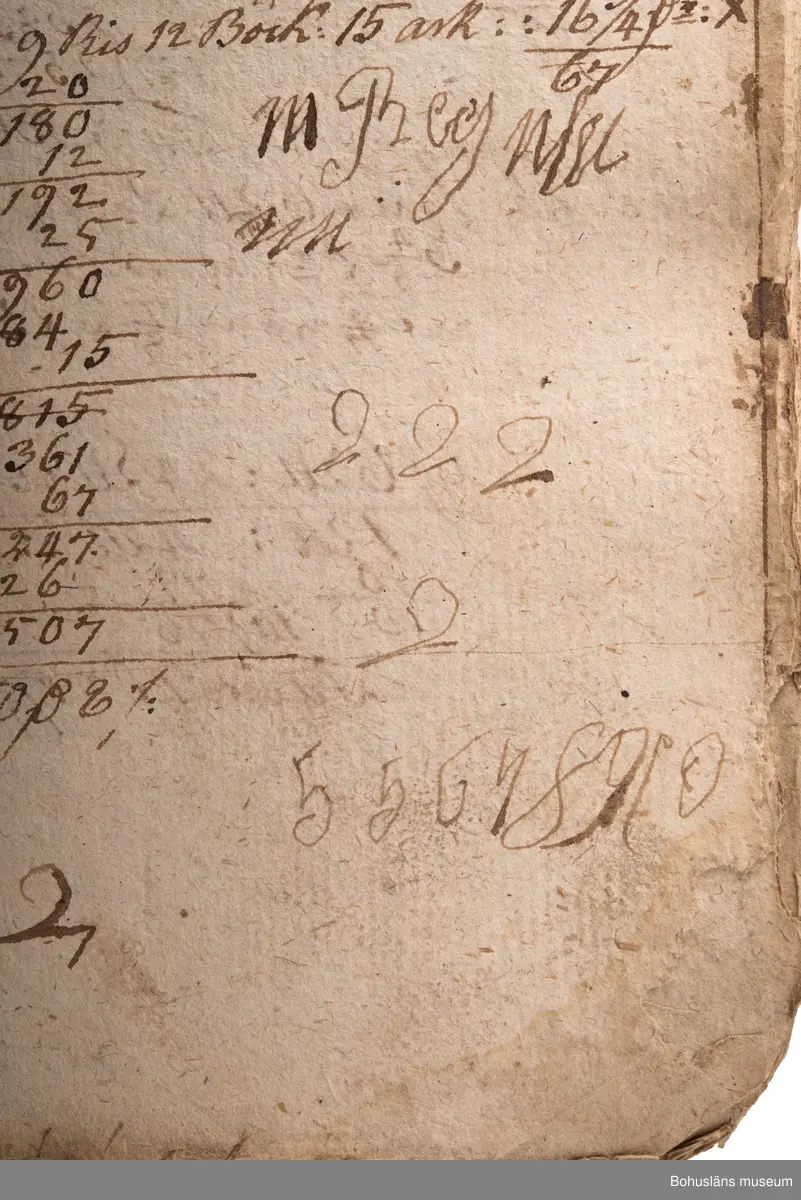 9 Ris 12 Böck: 15 ark : : 16 3/4 : X
20
67
180
12
192
25
960
84
15
815
361
67
247
26
507
2 2 2
2
5 5 6 7 8 9 0
2
Bohusläns museum